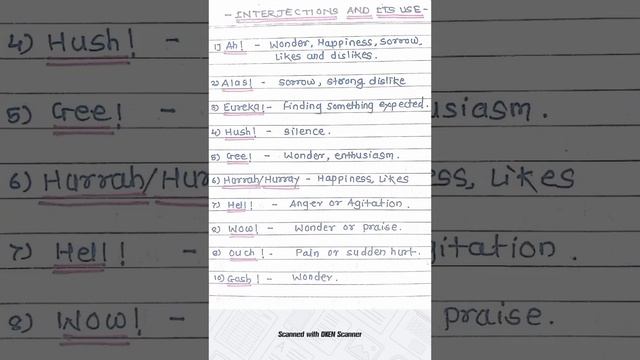 4) Hush! -
5) Gee! -
6) Hurrah/Hur
7) Hell!
8) Wow! -
- INTERJECTIONS AND ITS USE -
1) Ah! - Wonder, Happiness, Sorrow,
Likes and dislikes.
2) Alas! - sorrow, strong dislike
3) Eureka! - finding something expected.
4) Hush! - silence.
5) Gee! - Wonder, enthusiasm.
6) Hurrah/Hurray - Happiness, Likes
7) Hell! - Anger or Agitation.
8) Wow! - Wonder or praise.
9) Ouch! - Pain or sudden hurt.
10) Gosh! - Wonder.
Scanned with OKEN Scanner
usiasm.
ess, Likes
gitation.
praise.